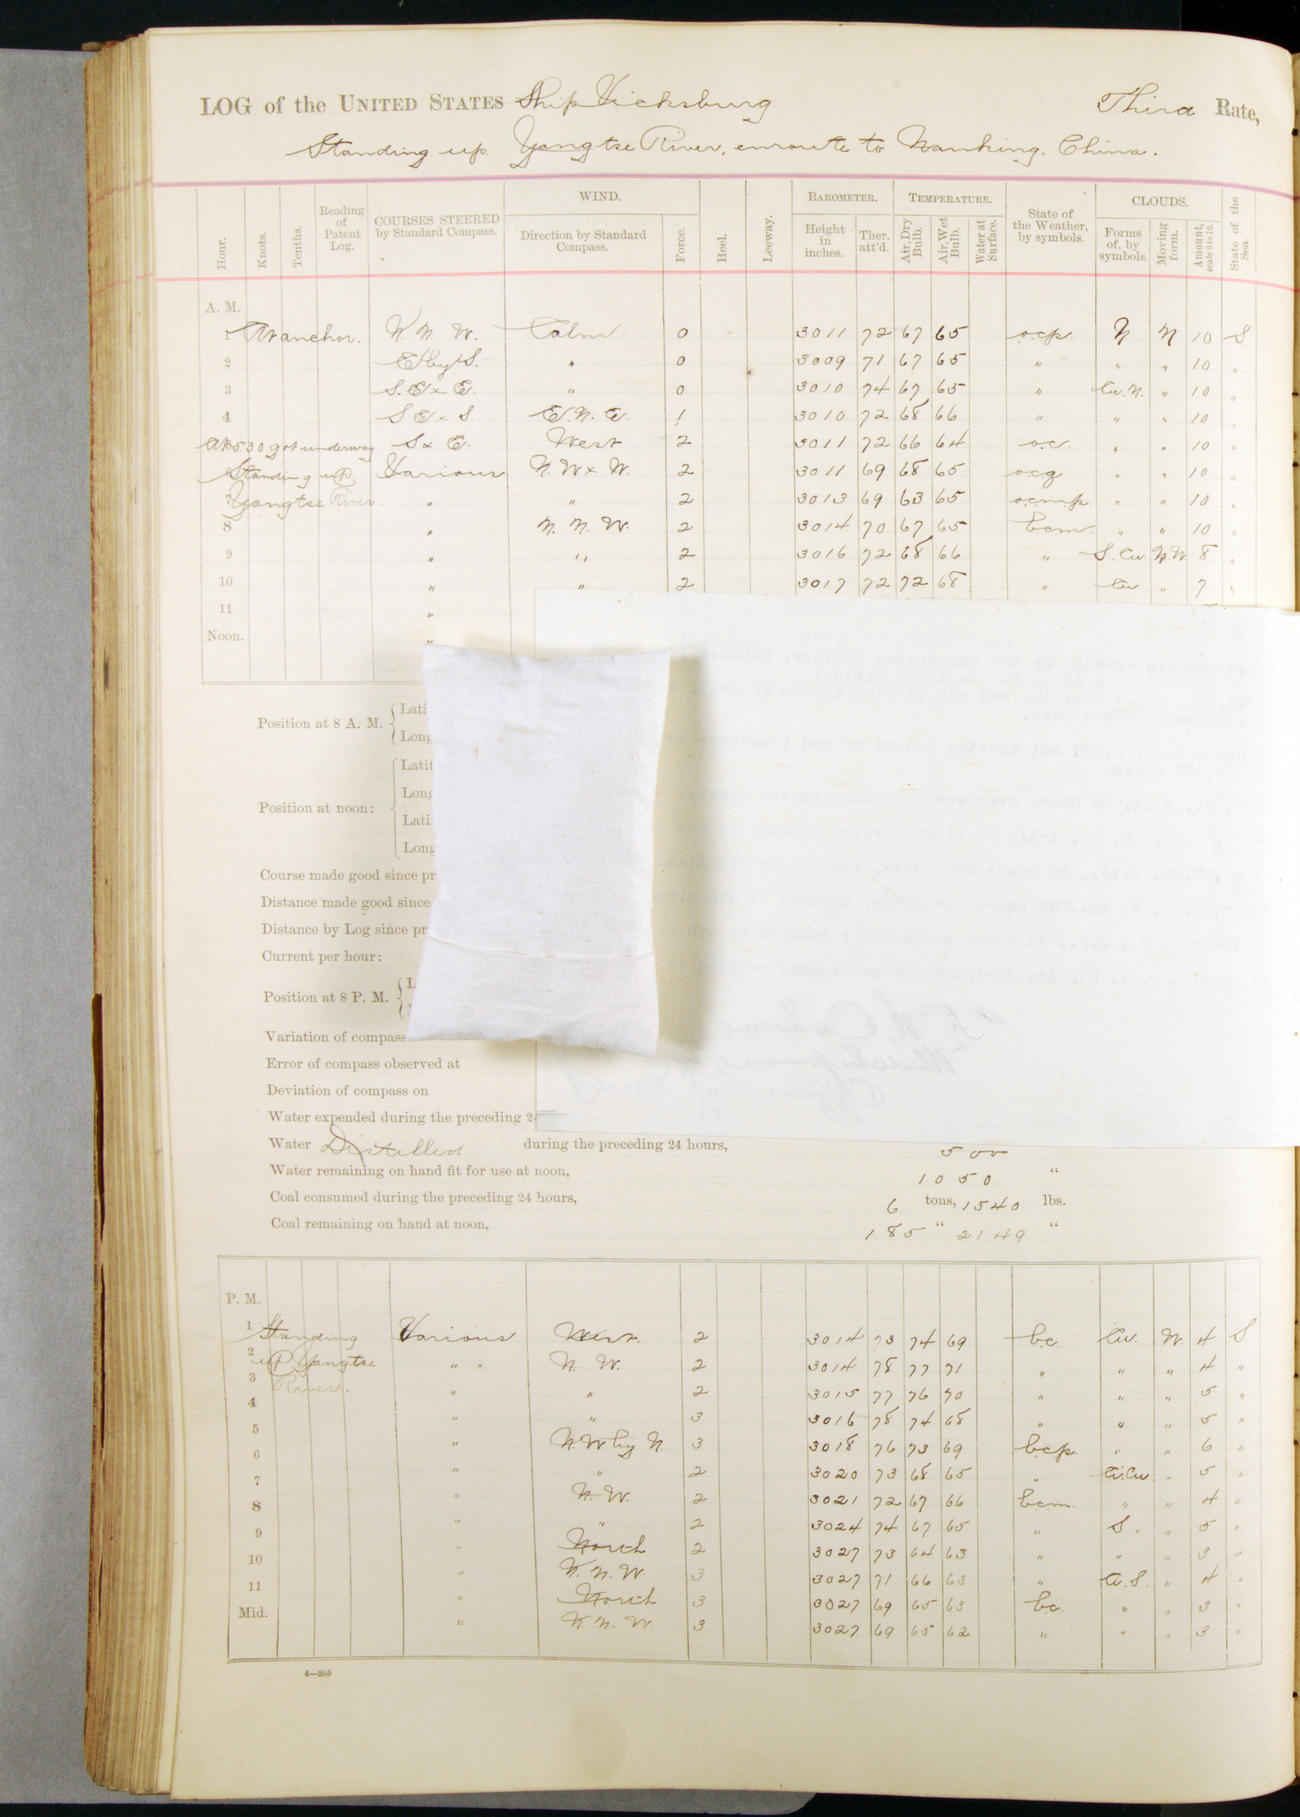 LOG of the UNITED STATES Ship Vicksburg Third Rate,
Standing up Yangtse River, enroute to Nanking, China.
Hour. Knots. Tenths. Reading of Patent Log. COURSES STEERED by Standard Compass. WIND. Direction by Standard Compass. Force. Heel. Leeway. BAROMETER. Height in inches. Ther. att'd. TEMPERATURE. Air, Dry Bulb. Air, Wet Bulb. Water at Surface. State of the Weather, by symbols. CLOUDS. Forms of, by symbols. Moving form. Amount, scale 0 to 10. State of the Sea.
A. M.
1 At anchor. N. N. W. Calm 0 3011 72 67 65 ocp N N 10 S
2 E by S. " 0 3009 71 67 65 " " " 10 "
3 S. E x E. " 0 3010 74 67 65 " Cu. N. " 10 "
4 S E x S E. N. E. 1 3010 72 68 66 " " " 10 "
At 5.30 got underway S x E. West 2 3011 72 66 64 o.c. " " 10 "
Standing up Various N. W x W. 2 3011 69 68 65 ocg " " 10 "
Yangtse River " " 2 3013 69 63 65 ocmp " " 10 "
8 " N. N. W. 2 3014 70 67 65 bcm " " 10 "
9 " " 2 3016 72 68 66 " S. Cu N.W. 8 "
10 " " 2 3017 72 72 68 " Cu " 7 "
11 "
Noon. "
Position at 8 A. M. Lati
Long
Position at noon: Latit
Long
Lati
Long
Course made good since pr
Distance made good since
Distance by Log since pr
Current per hour:
Position at 8 P. M. L
Variation of compass
Error of compass observed at
Deviation of compass on
Water expended during the preceding 2
Water Distilled during the preceding 24 hours, 500
Water remaining on hand fit for use at noon, 1050 "
Coal consumed during the preceding 24 hours, 6 tons, 1540 lbs.
Coal remaining on hand at noon, 185 " 2149 "
P. M.
1 Standing Various West. 2 3014 73 74 69 bc. Cu. W. 4 S
2 up Yangtse " N. W. 2 3014 78 77 71 " " " 4 "
3 River. " " 2 3015 77 76 70 " " " 5 "
4 " " 3 3016 78 74 68 " " " 5 "
5 " N W by N 3 3018 76 73 69 bcp. " " 6 "
6 " " 2 3020 73 68 65 " Ci.Cu. " 5 "
7 " N. W. 2 3021 72 67 66 bcm. " " 4 "
8 " " 2 3024 74 67 65 " S. " 5 "
9 " North 2 3027 73 64 63 " " " 3 "
10 " N. N. W. 3 3027 71 66 63 " Ci. S. " 4 "
11 " North 3 3027 69 65 63 bc. " " 3 "
Mid. " N. N. W. 3 3027 69 65 62 " " " 3 "
4—205